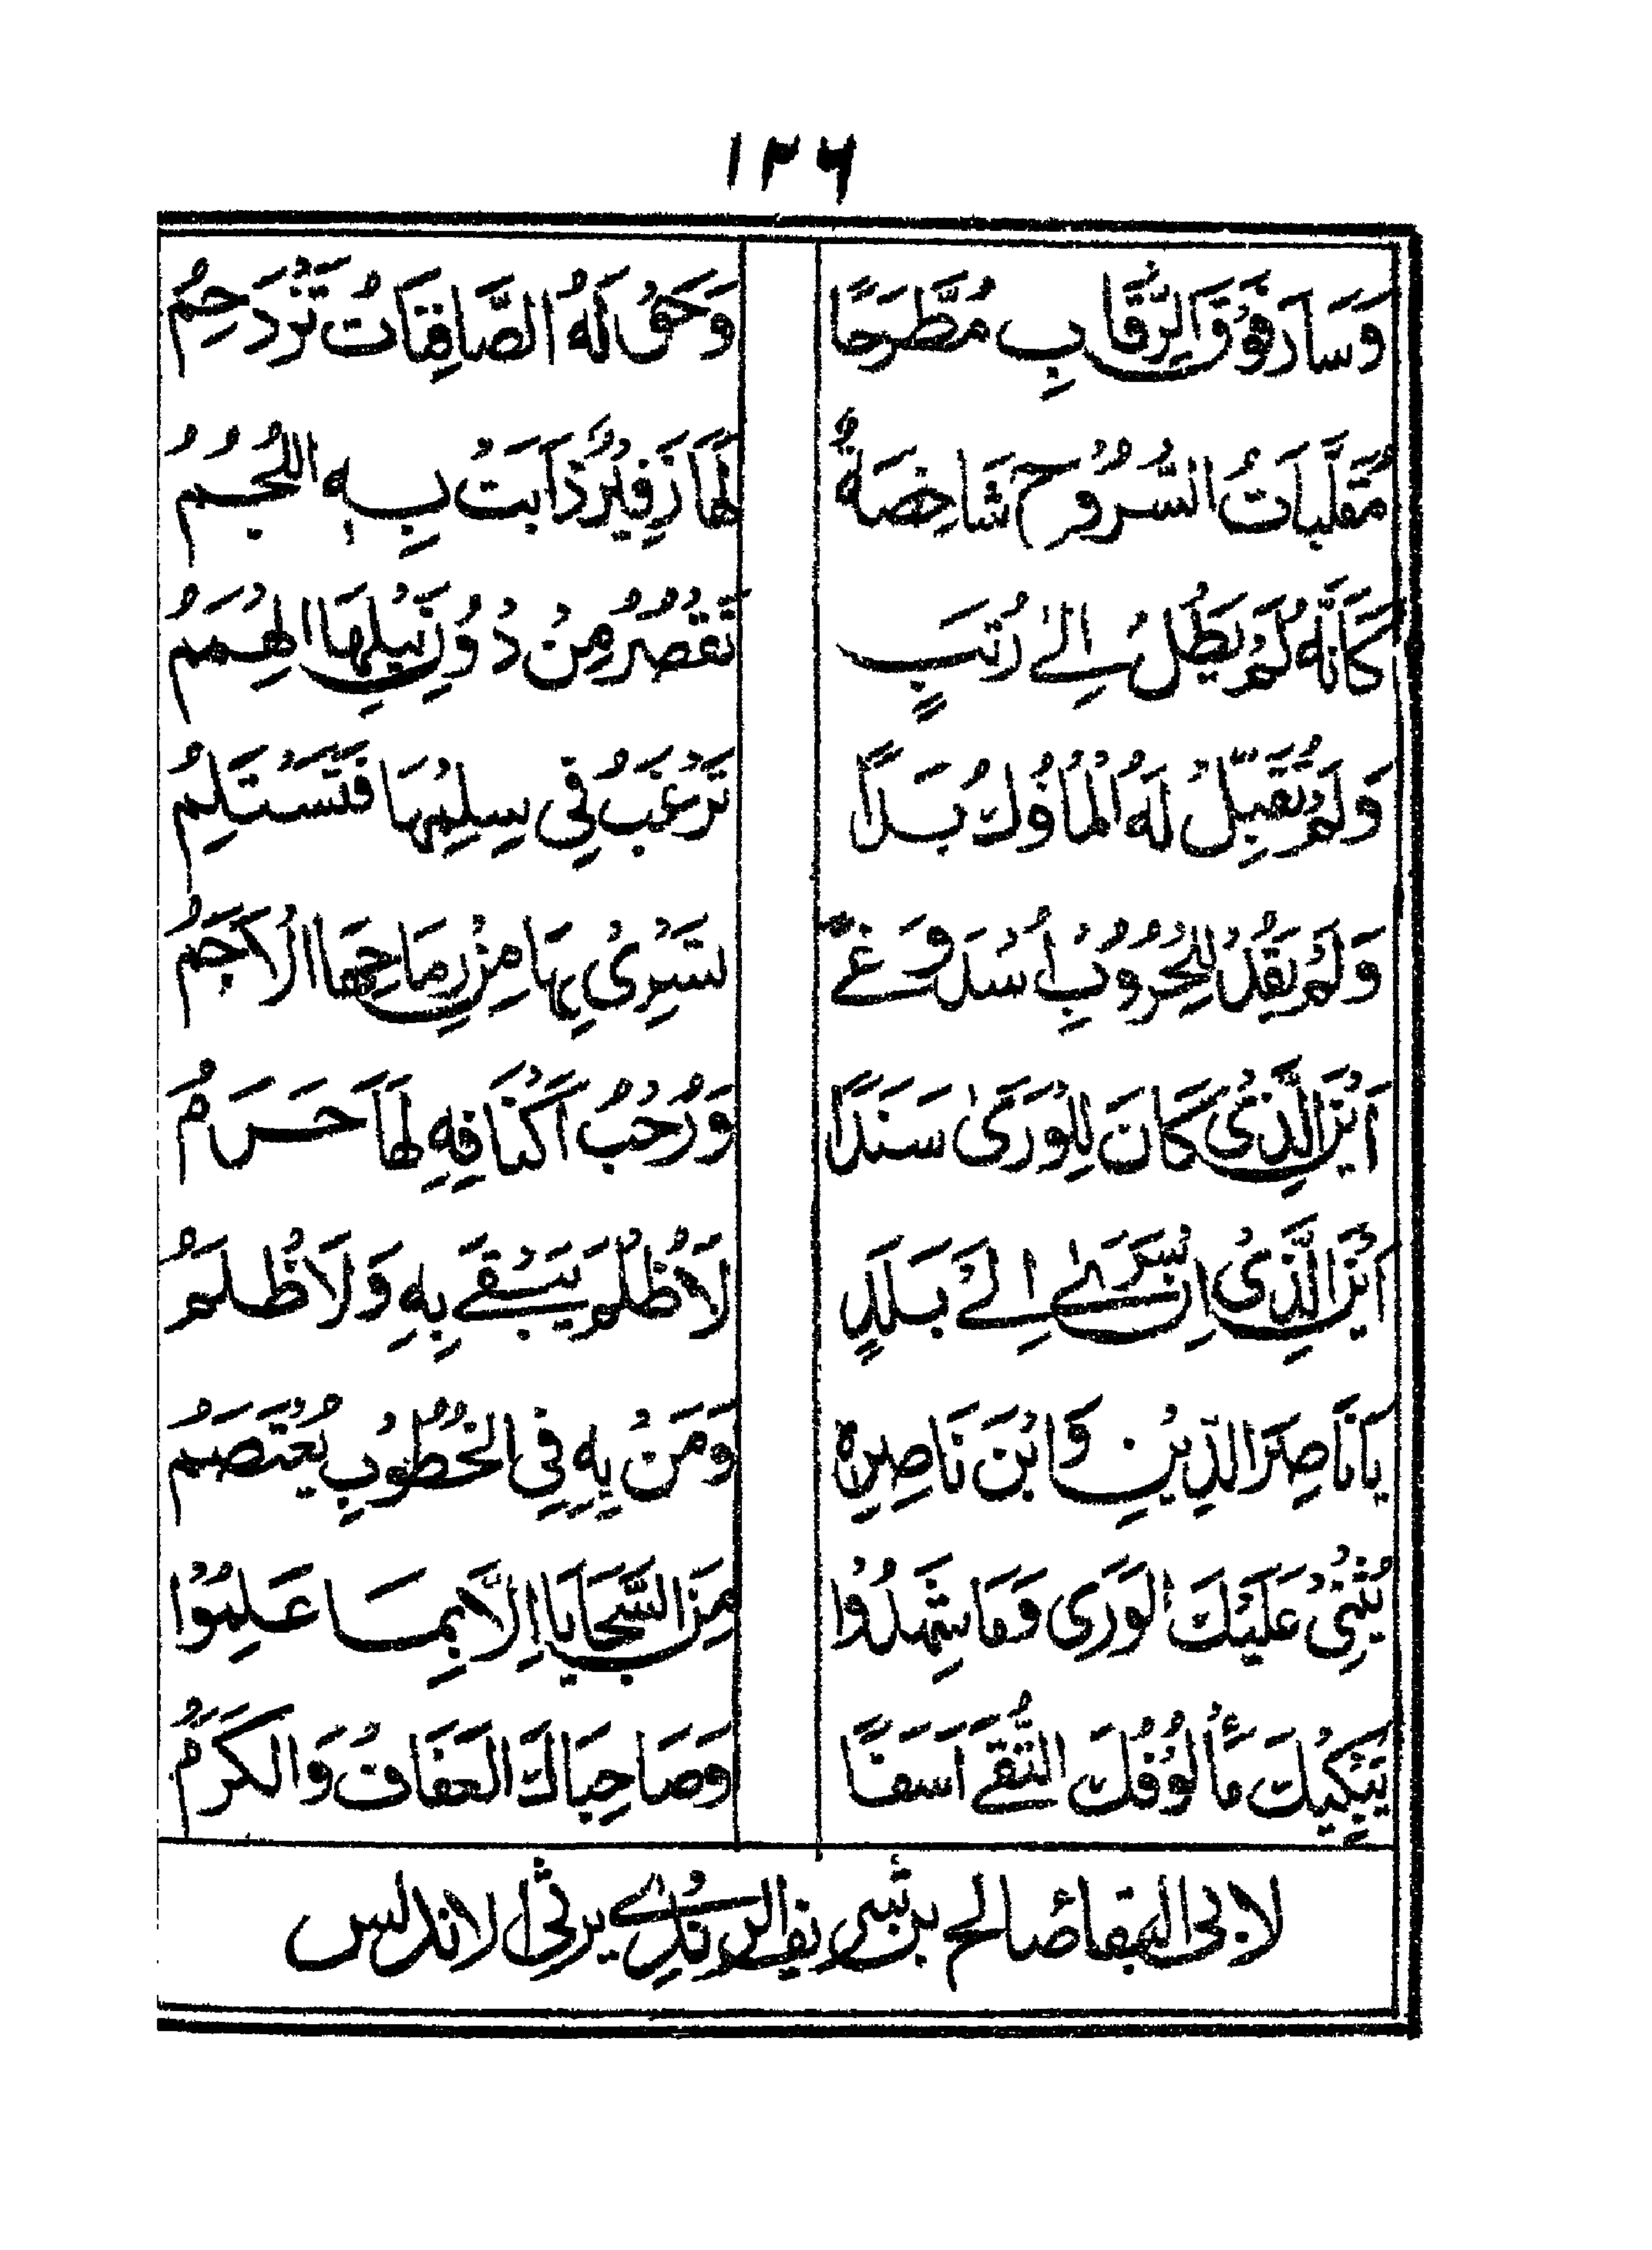 ١٢٦
وَسَارَ فَوْقَ الرِّقَابِ مُطَّرَحًا وَحَقُّ لَهُ الصَّافِنَاتُ تَزْدَحِمُ
مُقَلَّبَاتُ السُّرُوْحِ شَاخِصَةٌ لَهَا زَفِيْرٌ ذَابَتْ بِهِ اللُّجُمُ
كَاَنَّهُ لَمْ يَطُلْ اِلىٰ رُتَبٍ تَقْصُرُ مِنْ دُوْنِ نَيْلِهَا الهِمَمُ
وَلَمْ تُقَبِّلْ لَهُ الْمُلُوْكُ يَدًا تَرْغَبُ فِي سِلِمْهَا فَتَسْتَلِمُ
وَلَمْ يَقُدْ لِلْحُرُوْبِ اُسْدَ وَغًى تَسْرِىْ بِهَا مِنْ رِمَاحِهَا الْاَجَمُ
اَيْنَ الَّذِىْ كَانَ لِلْوَرَىٰ سَنَدًا وَرُحْبُ اَكْنَافِهِ لَهَا حَرَمُ
اَيْنَ الَّذِىْ اِنْ سَرىٰ اِلىٰ بَلَدٍ لَا ظُلْمَ يَبْقىٰ بِهِ وَلَا ظُلَمُ
يَا نَاصِرَ الدِّيْنِ وَابْنَ نَاصِرِهِ وَمَنْ بِهِ فِي الخُطُوْبِ يُعْتَصَمُ
يُثْنِىْ عَلَيْكَ الوَرَى وَمَا شَهِدُوْا مِنَ السَّجَايَا اِلَّا بِمَا عَلِمُوْا
يَبْكِيْكَ مَأْلُوْفُكَ التُّقىٰ اَسَفًا وَصَاحِبَاكَ العَفَافُ وَالكَرَمُ
لابى البقا صالح بن شريف الرندى يرثى الاندلس